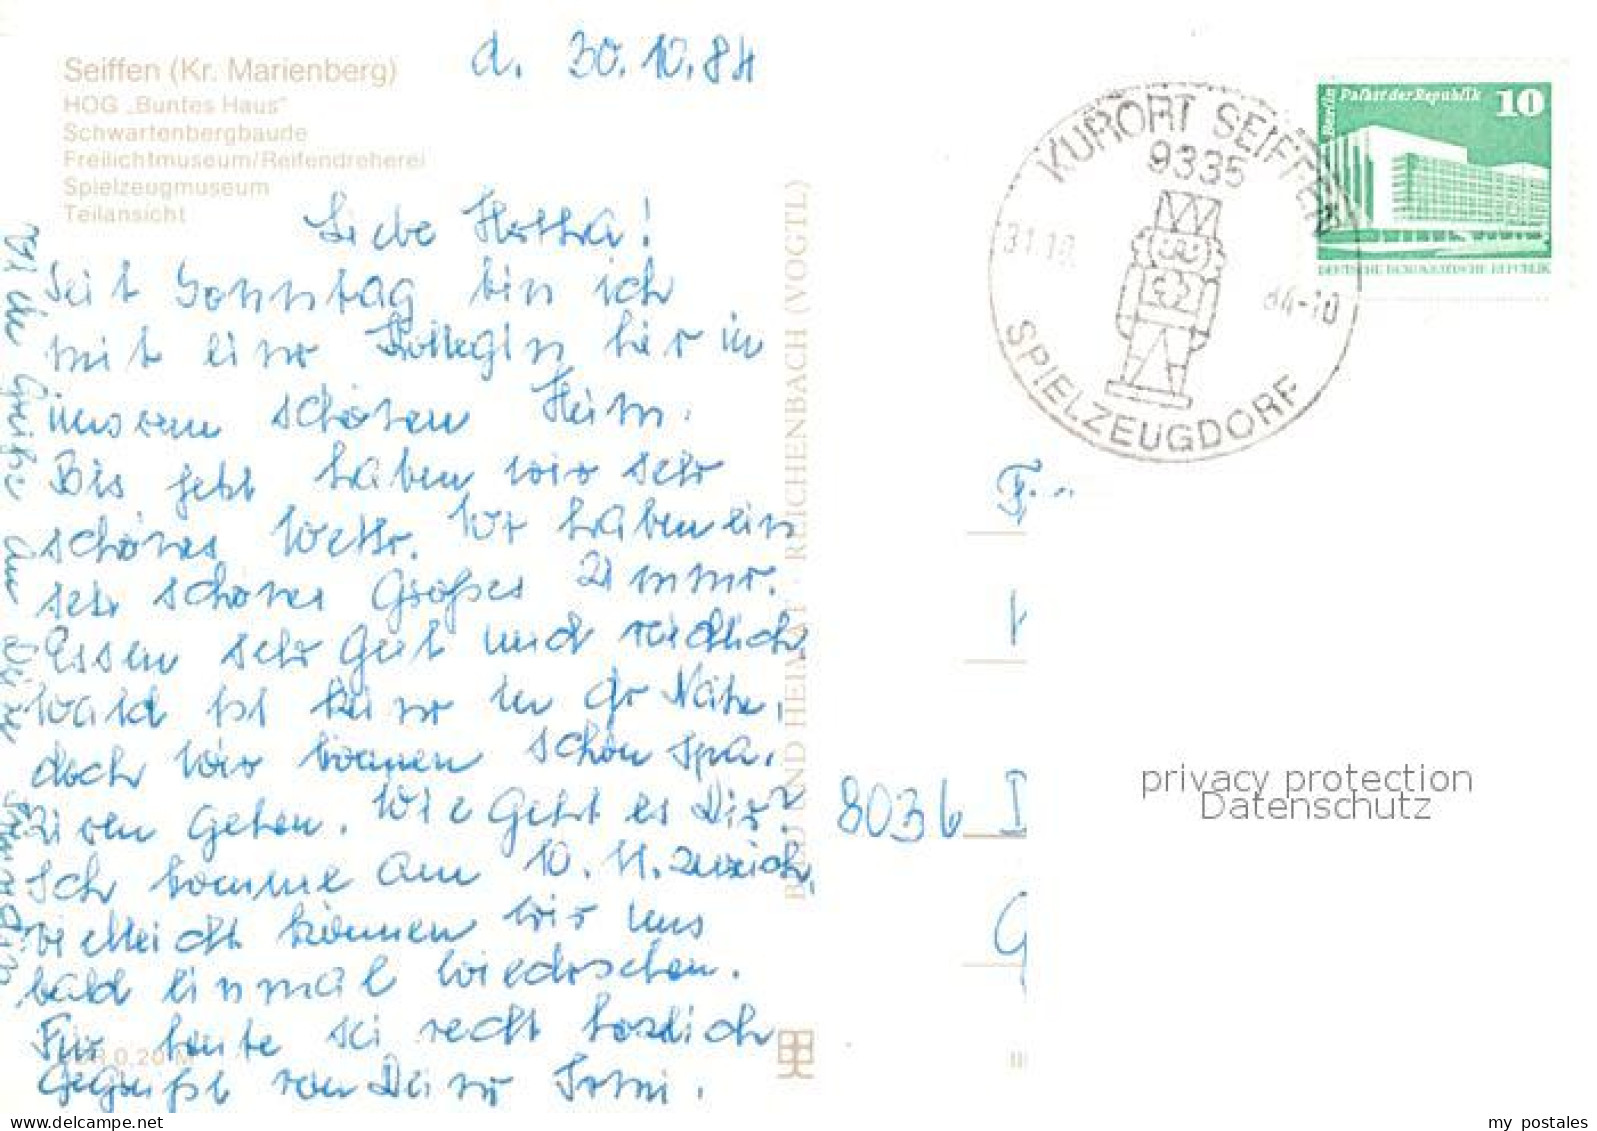 d. 30.10.84
Seiffen (Kr. Marienberg)
HOG „Buntes Haus"
Schwartenbergbaude
Freilichtmuseum/Reifendreherei
Spielzeugmuseum
Teilansicht
Liebe Hertha!
Seit Sonntag bin ich
mit einer Kollegin hier in
unserem schönen Heim.
Bis jetzt haben wir sehr
schönes Wetter. Wir haben ein
sehr schönes Großes Zimmer.
Essen sehr Gut und reichlich
Wald ist keiner in der Nähe,
doch wir können schön spa-
zieren Gehen. Wie Geht es Dir?
Ich komme am 10. 11. zurück,
vielleicht können wir uns
bald einmal wiedersehen.
Für heute sei recht herzlich
Gegrüßt von Deiner
Viele Grüße an Deine
BILD UND HEIMAT · REICHENBACH (VOGTL)
0.20 M
KURORT SEIFFEN
9335
31.10.
84-10
SPIELZEUGDORF
Berlin Palast der Republik 10
DEUTSCHE DEMOKRATISCHE REPUBLIK
8036
G
privacy protection
Datenschutz
www.delcampe.net
my_postales